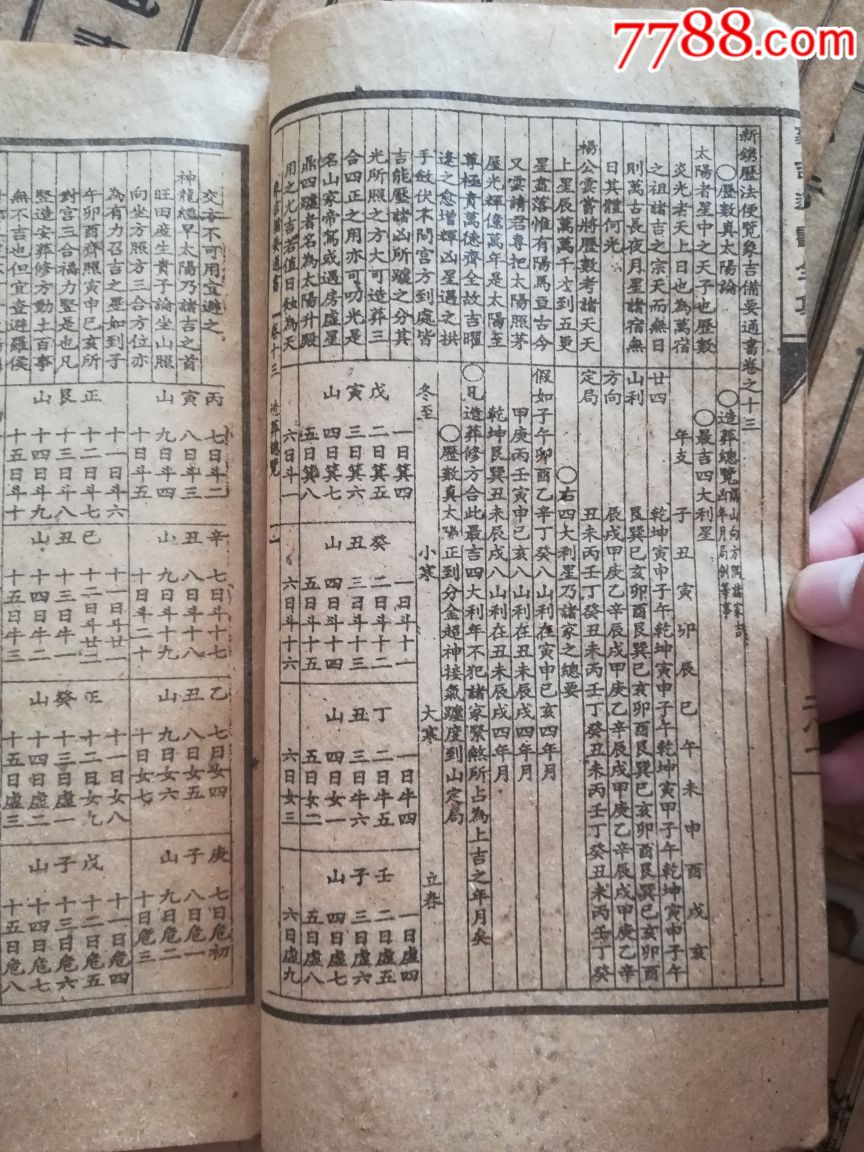 7788.com
新鐫歷法便覽象吉備要通書卷之十三
〇歷數真太陽論
太陽者星中之天子也歷數
炎光者天上日也為萬宿
之祖諸吉之宗天而無日
則萬古長夜月星諸宿無
日其體何光
楊公雲嘗將歷數考諸天天
上星辰萬萬千才到五更
星盡落惟有陽馬亘古今
又雲請君專把太陽照茅
屋光輝億萬年是太陽至
尊極貴萬德齊全故吉曜
逢之愈增輝凶星遇之拱
手斂伏不問宮方到處皆
吉能壓諸凶所躔之分其
光所照之方大可造葬三
合四正之用亦可叨光是
名山家帝駕或遇房虛星
鼎四躔者名為太陽升殿
用之尤吉若值日蝕為天
〇造葬總覽
〇最吉四大利星
年支 子 丑 寅 卯 辰 巳 午 未 申 酉 戌 亥
廿四
山利
方向
定局
乾坤寅申子午乾坤寅申子午乾坤寅甲子午乾坤寅申子午
艮巽巳亥卯酉艮巽巳亥卯酉艮巽巳亥卯酉艮巽巳亥卯酉
辰戌甲庚乙辛辰戌甲庚乙辛辰戌甲庚乙辛辰戌甲庚乙辛
丑未丙壬丁癸丑未丙壬丁癸丑未丙壬丁癸丑未丙壬丁癸
〇右四大利星乃諸家之總要
假如子午卯酉乙辛丁癸八山利在寅申巳亥四年月
甲庚丙壬寅申巳亥八山利在辰戌四年月
乾坤艮巽丑未辰戌八山利在丑未辰戌四年月
〇凡造葬修方合此最吉四大利年不犯諸家緊煞所占為上吉之年月矣
〇歷數真太陽正到分金超神接氣躔度到山定局
冬至 小寒 大寒 立春
戊寅山
一日箕四
二日箕五
三日箕六
四日箕七
五日箕八
六日斗一
癸丑山
一日斗十一
二日斗十二
三日斗十三
四日斗十四
五日斗十五
六日斗十六
丁丑山
一日牛四
二日牛五
三日牛六
四日女一
五日女二
六日女三
壬子山
一日虛四
二日虛五
三日虛六
四日虛七
五日虛八
六日虛九
象吉備要通書 卷十三 造葬總覽
交方不可用宜避之
神龍總早太陽乃諸吉之首
旺田産生貴子論坐山照
向坐方照方三合方位亦
為有力召吉之星如到子
午卯酉齊照寅申巳亥所
對宮三合福力豎是也凡
豎造安葬修方動土百事
無不吉也但宜查避羅侯
丙寅山
七日斗二
八日斗三
九日斗四
十日斗五
辛丑山
七日斗十七
八日斗十八
九日斗十九
十日斗二十
乙丑山
七日女四
八日女五
九日女六
十日女七
庚子山
七日危初
八日危一
九日危二
十日危三
正艮山
十一日斗六
十二日斗七
十三日斗八
十四日斗九
十五日斗十
巳丑山
十三日牛一
十四日牛二
十五日牛三
正癸山
十一日女八
十二日女九
十三日虛一
十四日虛二
十五日虛三
戊子山
十一日危四
十二日危五
十三日危六
十四日危七
十五日危八